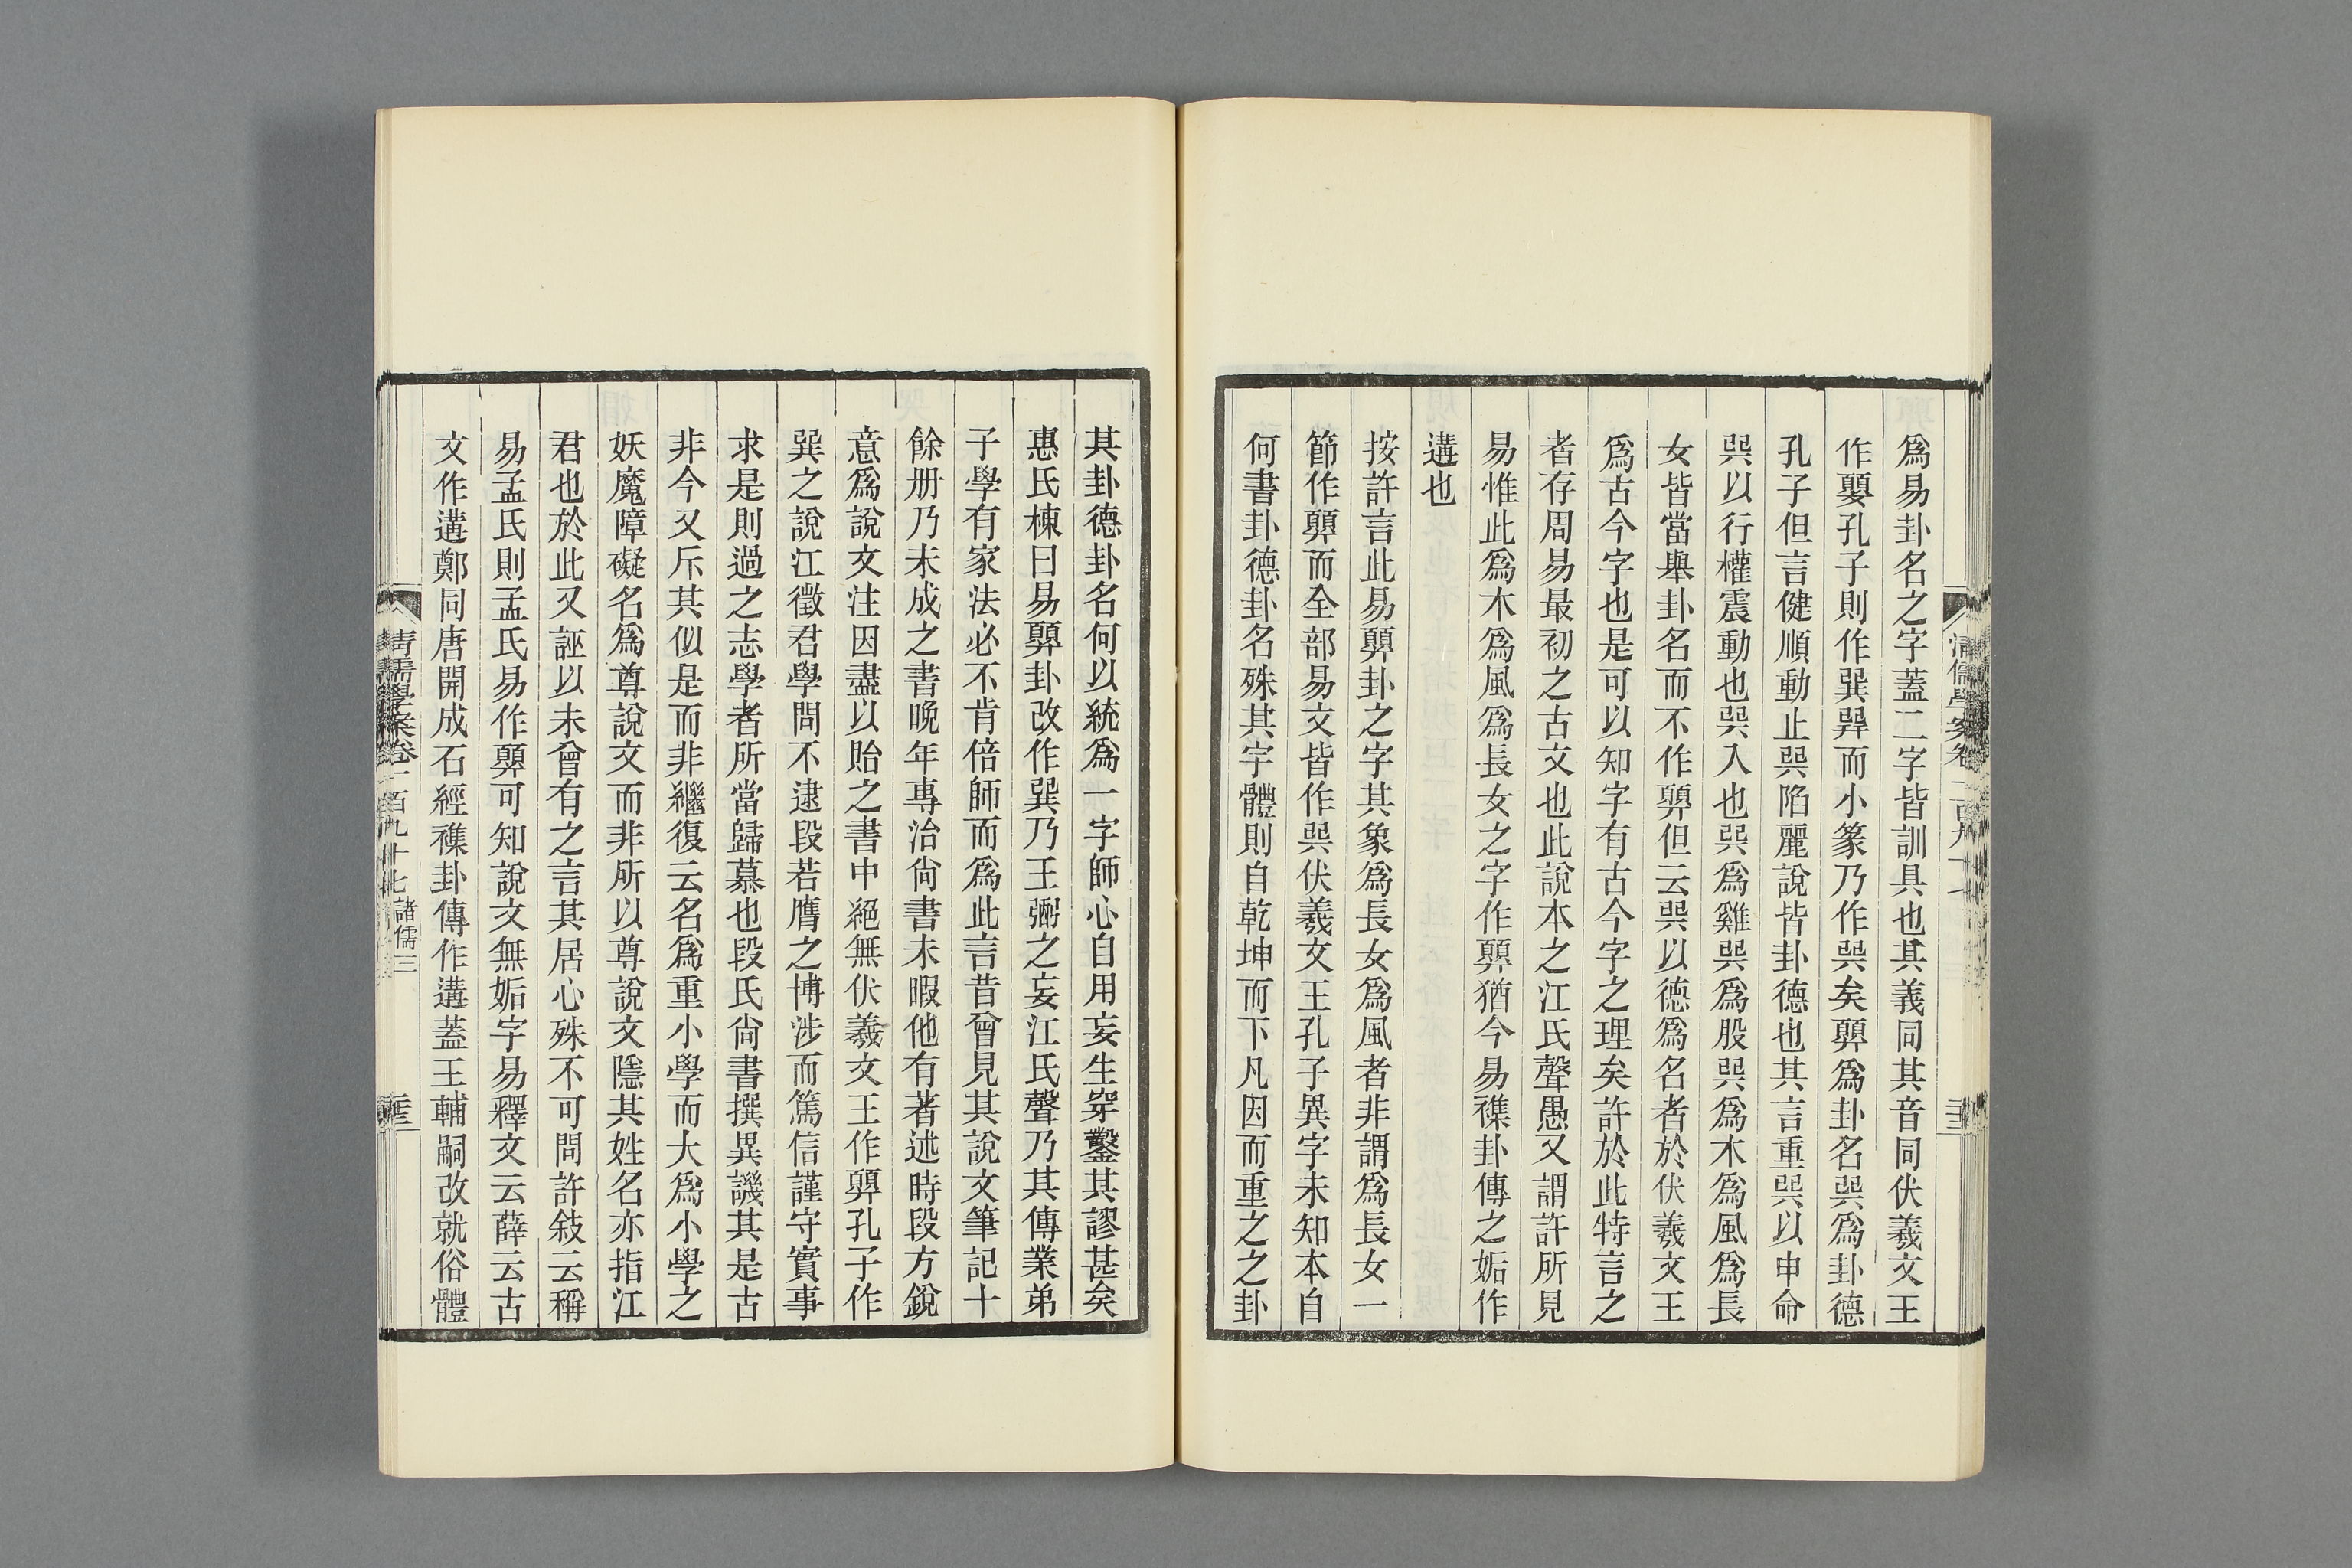 爲易卦名之字蓋二字皆訓具也其義同其音同伏羲文王
作顨孔子則作巽䢪而小篆乃作㢲矣顨爲卦名㢲爲卦德
孔子但言健順動止㢲陷麗說皆卦德也其言重㢲以申命
㢲以行權震動也㢲入也㢲爲雞㢲爲股㢲爲木爲風爲長
女皆當舉卦名而不作顨但云㢲以德爲名者於伏羲文王
爲古今字也是可以知字有古今字之理矣許於此特言之
者存周易最初之古文也此說本之江氏聲愚又謂許所見
易惟此爲木爲風爲長女之字作顨猶今易襍卦傳之姤作
遘也
按許言此易顨卦之字其象爲長女爲風者非謂爲長女一
節作顨而全部易文皆作㢲伏羲文王孔子異字未知本自
何書卦德卦名殊其字體則自乾坤而下凡因而重之之卦
其卦德卦名何以統爲一字師心自用妄生穿鑿其謬甚矣
惠氏棟曰易顨卦改作巽乃王弼之妄江氏聲乃其傳業弟
子學有家法必不肯倍師而爲此言昔曾見其說文筆記十
餘册乃未成之書晚年專治尙書未暇他有著述時段方銳
意爲說文注因盡以貽之書中絕無伏羲文王作顨孔子作
巽之說江徵君學問不逮段若膺之博涉而篤信謹守實事
求是則過之志學者所當歸慕也段氏尙書撰異譏其是古
非今又斥其似是而非繼復云名爲重小學而大爲小學之
妖魔障礙名爲尊說文而非所以尊說文隱其姓名亦指江
君也於此又誣以未曾有之言其居心殊不可問許敍云稱
易孟氏則孟氏易作顨可知說文無姤字易釋文云薛云古
文作遘鄭同唐開成石經襍卦傳作遘蓋王輔嗣改就俗體
清儒學案卷一百九十七 諸儒三